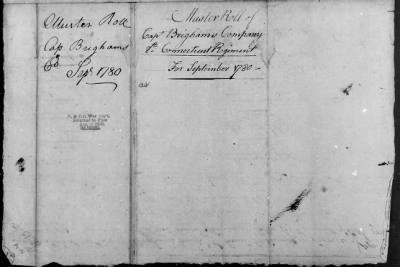 Muster Roll
Cap Brighams
Co Sepr 1780
Muster Roll of
Capt Brighams Company
8th Connecticut Regiment
For September 1780 –